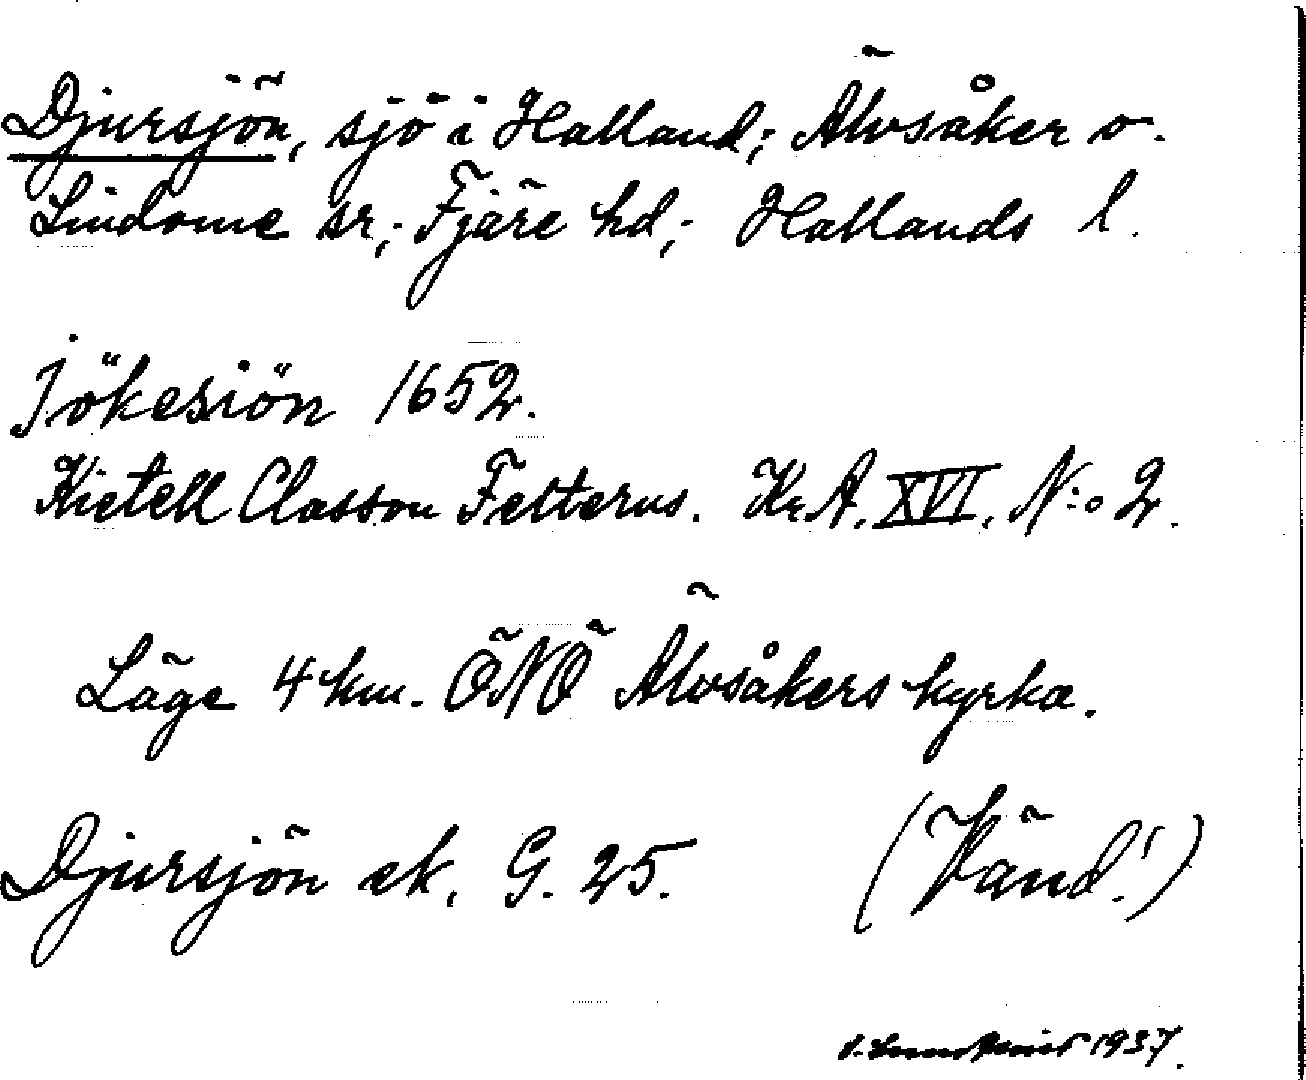 Djursjön, sjö i Halland; Älvsåker o.
Lindome sr; Fjäre hd; Hallands l.
Jökesiön 1652.
Kietell Classon Felterus. Kr. A. XVI. N:o 2.
Läge 4 km. ÖNÖ Älvsåkers kyrka.
Djursjön ek. G. 25. (Vänd!)
1937.